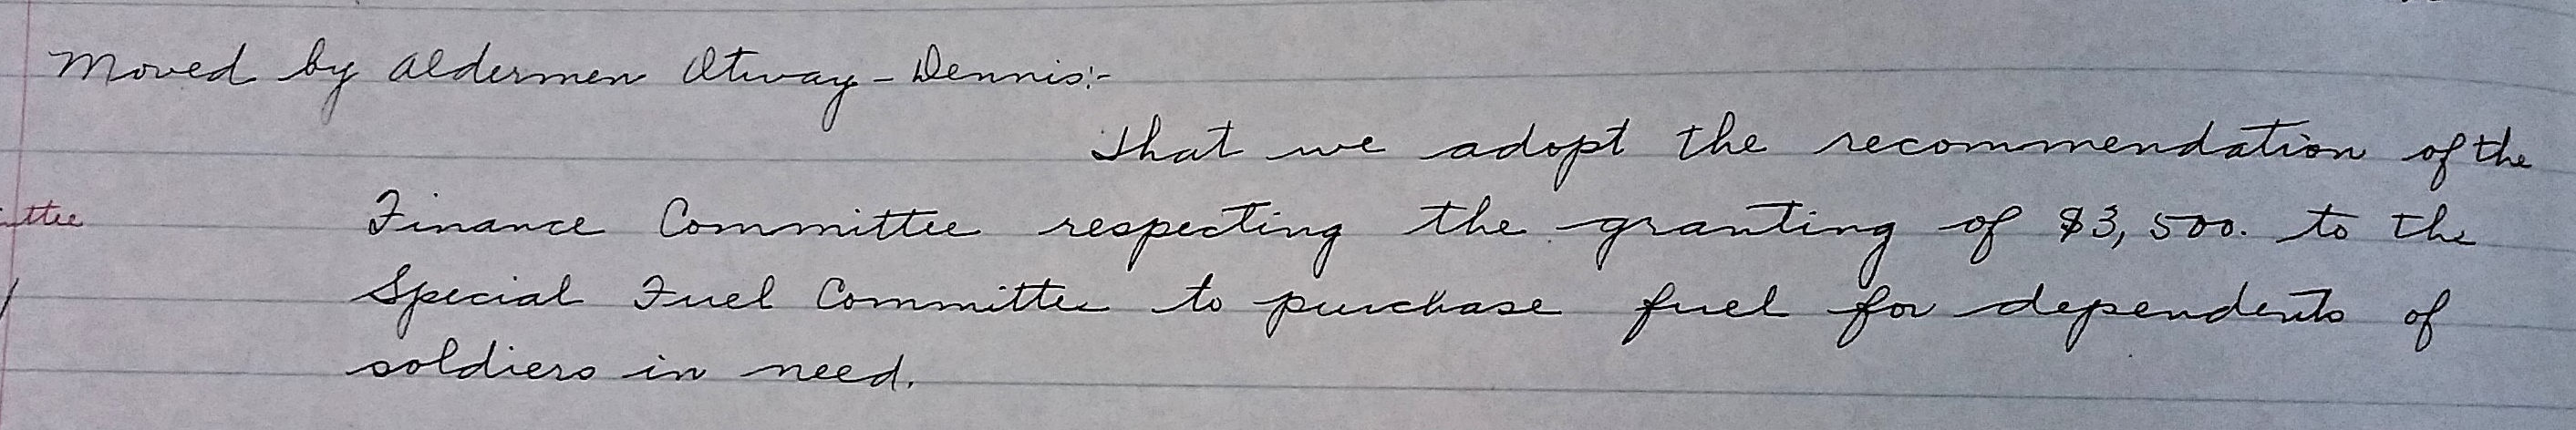 Moved by Aldermen Otway - Dennis:-
That we adopt the recommendation of the
Finance Committee respecting the granting of $3,500. to the
Special Fuel Committee to purchase fuel for dependents of
soldiers in need.